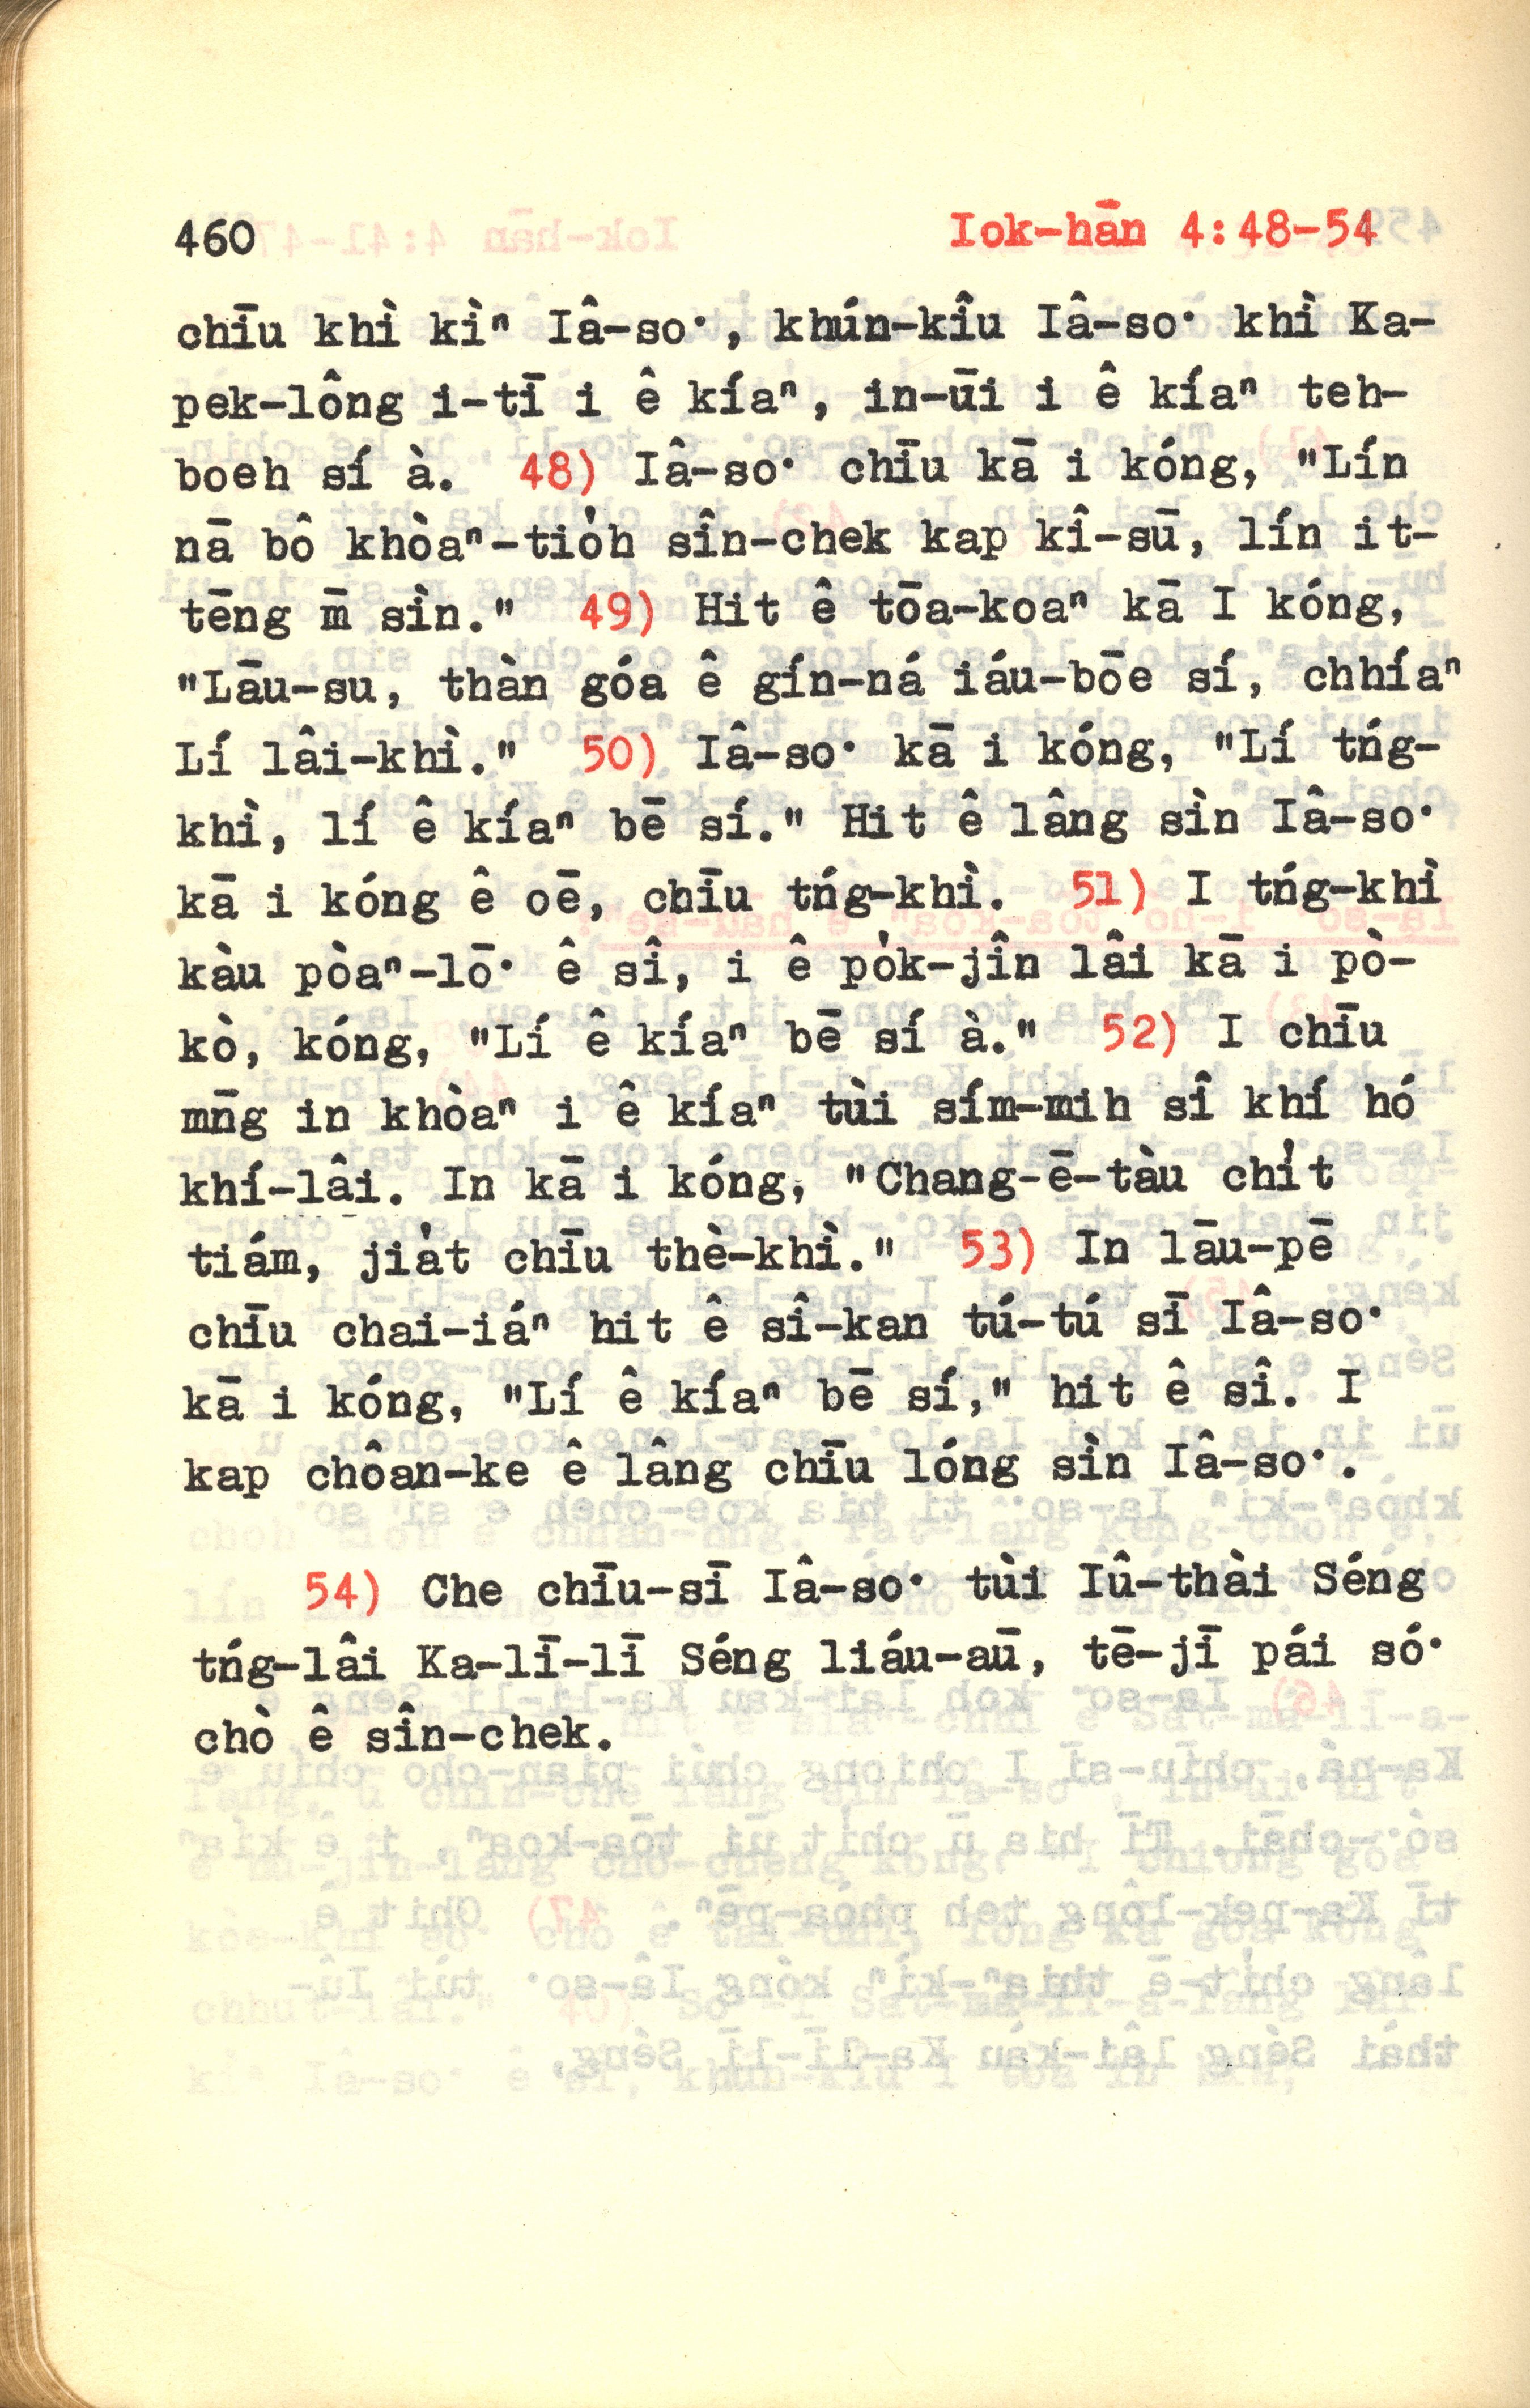 460 Iok-hān 4:48-54
chīu khì kìⁿ Iâ-so͘, khún-kîu Iâ-so͘ khì Ka-
pek-lông i-tī i ê kíaⁿ, in-ūi i ê kíaⁿ teh-
boeh sí à. 48) Iâ-so͘ chīu kā i kóng, "Lín
nā bô khòaⁿ-tio̍h sîn-chek kap kî-sū, lín it-
tēng m̄ sìn." 49) Hit ê tōa-koaⁿ kā I kóng,
"Lāu-su, thàn góa ê gín-ná iáu-bōe sí, chhíaⁿ
Lí lâi-khì." 50) Iâ-so͘ kā i kóng, "Lí tńg-
khì, lí ê kíaⁿ bē sí." Hit ê lâng sìn Iâ-so͘
kā i kóng ê oē, chīu tńg-khì. 51) I tńg-khì
kàu pòaⁿ-lō͘ ê sî, i ê po̍k-jîn lâi kā i pò-
kò, kóng, "Lí ê kíaⁿ bē sí à." 52) I chīu
mn̄g in khòaⁿ i ê kíaⁿ tùi sím-mih sî khí hó
khí-lâi. In kā i kóng, "Chang-ē-tàu chi̍t
tiám, jia̍t chīu thè-khì." 53) In lāu-pē
chīu chai-iáⁿ hit ê sî-kan tú-tú sī Iâ-so͘
kā i kóng, "Lí ê kíaⁿ bē sí," hit ê sî. I
kap chôan-ke ê lâng chīu lóng sìn Iâ-so͘.
54) Che chīu-sī Iâ-so͘ tùi Iû-thài Séng
tńg-lâi Ka-lī-lī Séng liáu-aū, tē-jī pái só͘
chò ê sîn-chek.